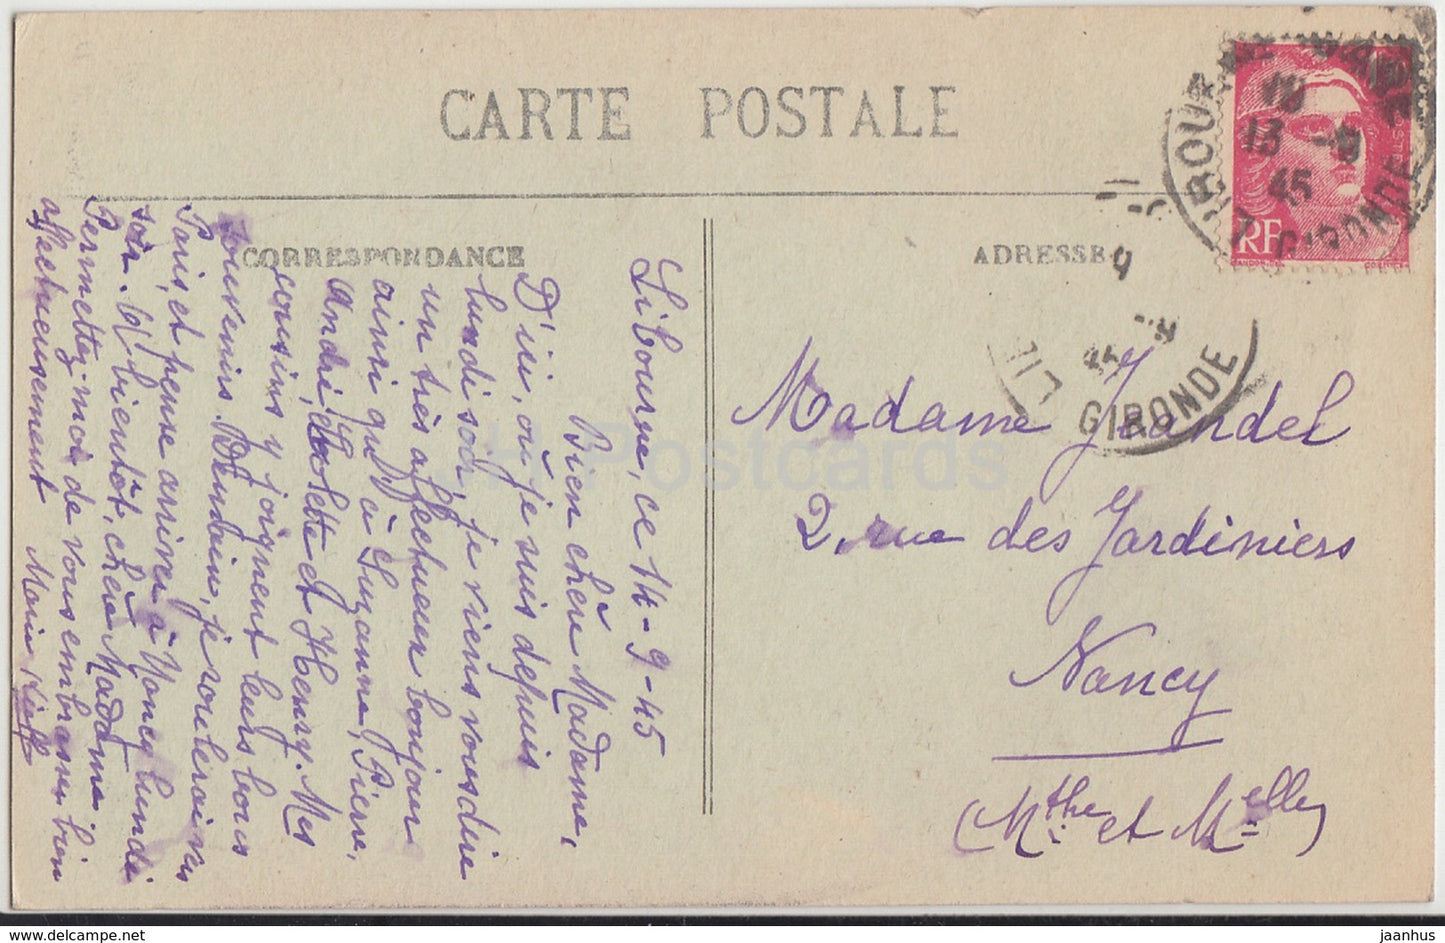 CARTE POSTALE
CORRESPONDANCE
ADRESSE
Libourne, ce 14-9-45
Bien chère Madame,
D'ici, où je suis depuis
lundi soir, je viens vous dire
un très affectueux bonjour
ainsi qu'à Suzanne, Pierre,
André, Colette et Henry. Mes
cousins y joignent leurs bons
souvenirs. Demain, je
Paris, et pense arriver à Nancy lundi
soir. A bientôt, chère Madame
Permettez moi de vous embrasser bien
affectueusement
Madame Jeandel
2, rue des Jardiniers
Nancy
(Mthe et Melle)
RF
GIRONDE
13 -9
45
LIB
GIRONDE
JH Postcards
jaanhus — www.delcampe.net